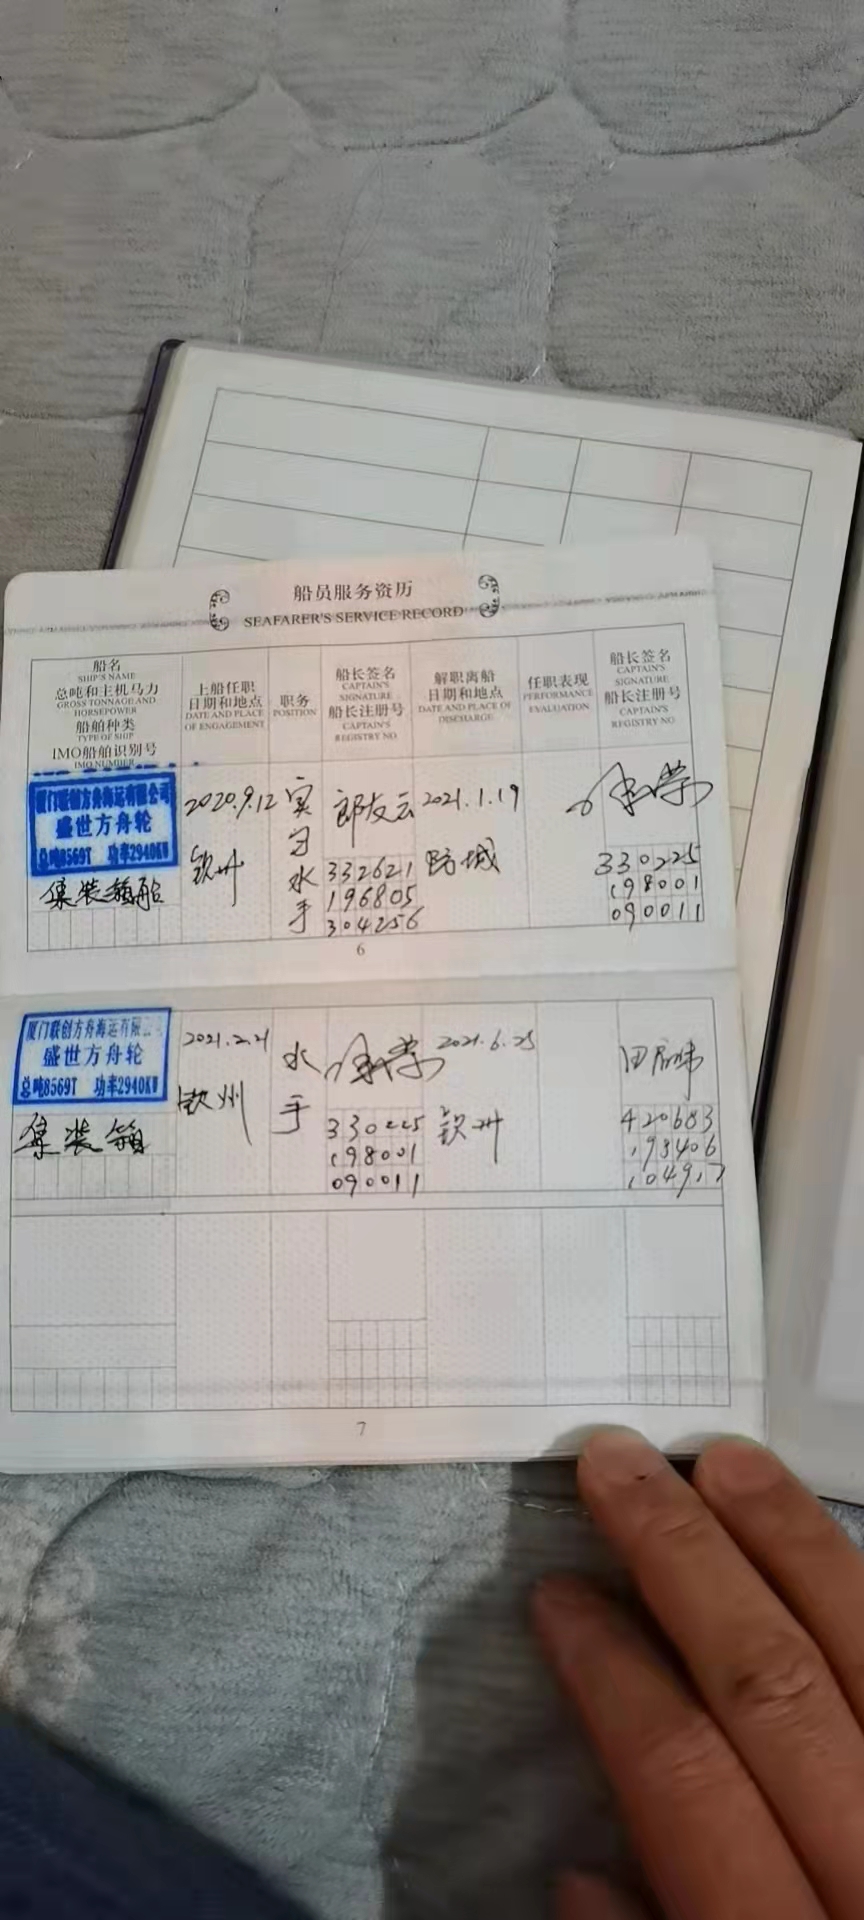 船员服务资历
SEAFARER'S SERVICE RECORD
船名
SHIP'S NAME
总吨和主机马力
GROSS TONNAGE AND
HORSEPOWER
船舶种类
TYPE OF SHIP
IMO船舶识别号
IMO NUMBER
上船任职
日期和地点
DATE AND PLACE
OF ENGAGEMENT
职务
POSITION
船长签名
CAPTAIN'S
SIGNATURE
船长注册号
CAPTAIN'S
REGISTRY NO
解职离船
日期和地点
DATE AND PLACE OF
DISCHARGE
任职表现
PERFORMANCE
EVALUATION
船长签名
CAPTAIN'S
SIGNATURE
船长注册号
CAPTAIN'S
REGISTRY NO
厦门联创方舟海运有限公司
盛世方舟轮
总吨8569T 功率2940KW
集装箱船
2020.9.12
钦州
实
习
水
手
郎友云
332621
196805
304256
2021.1.19
防城
330225
198001
090011
6
厦门联创方舟海运有限
盛世方舟轮
总吨8569T 功率2940KW
集装箱
2021.2.21
钦州
水
手
330225
198001
090011
2021.6.25
钦州
420683
7